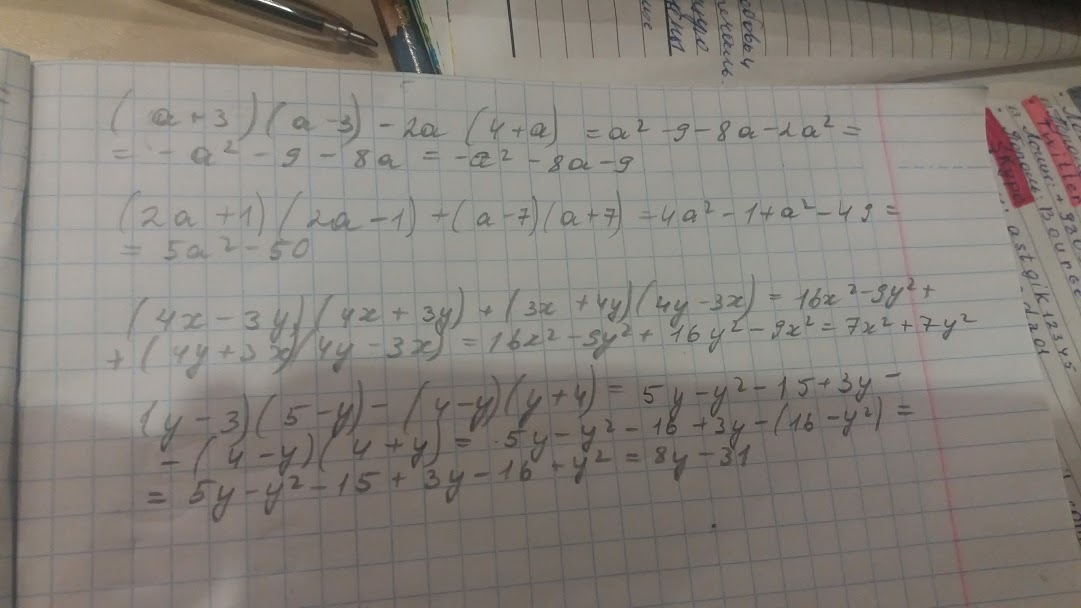 (a+3)(a-3)-2a(4+a)=a²-9-8a-2a²=
=-a²-9-8a=-a²-8a-9
(2a+1)(2a-1)+(a-7)(a+7)=4a²-1+a²-49=
=5a²-50
(4x-3y)(4x+3y)+(3x+4y)(4y-3x)=16x²-9y²+
+(4y+3x)(4y-3x)=16x²-9y²+16y²-9x²=7x²+7y²
(y-3)(5-y)-(4-y)(y+4)=5y-y²-15+3y-
-(4-y)(4+y)=5y-y²-16+3y-(16-y²)=
=5y-y²-15+3y-16+y²=8y-31
Skype
Twitter